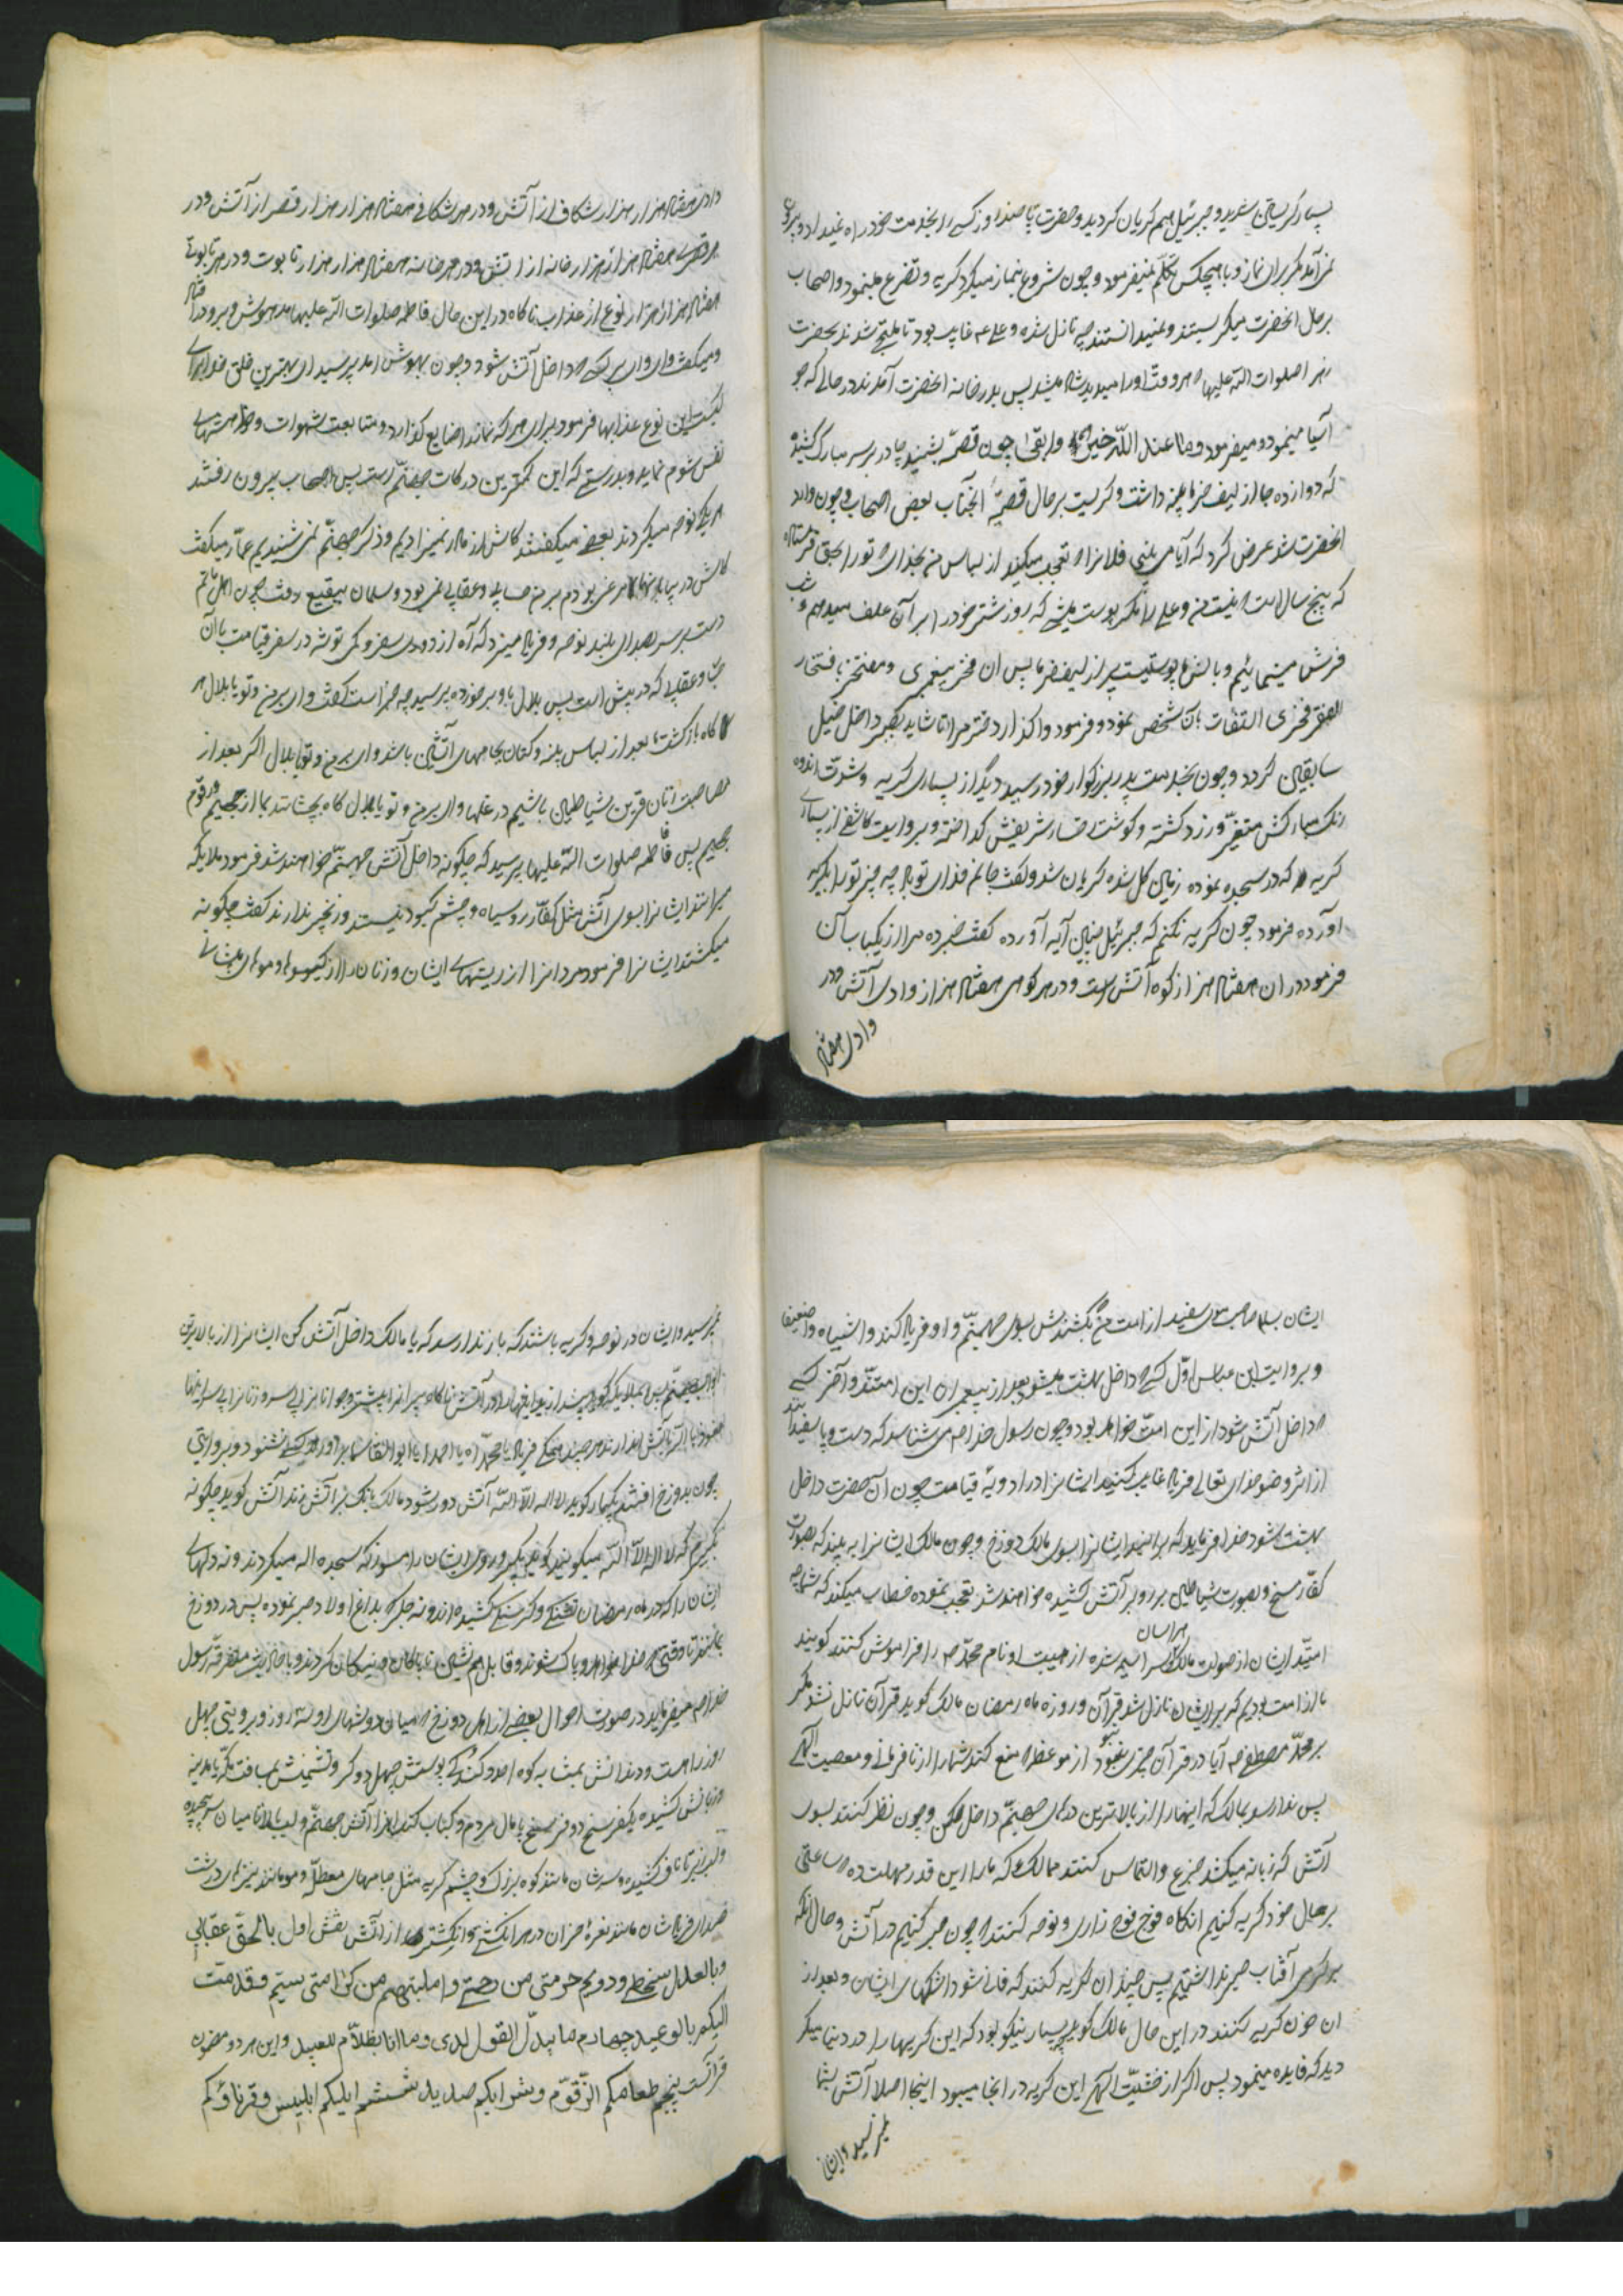 بسیار گریستن شدید و جبرئیل هم گریان گردید و حضرت تا چند روز کسی را بخدمت خود راه نمیداد و بیرون
نمی‌آمد مگر برای نماز و با هیچکس تکلّم نمیفرمود و چون شروع بنماز میکرد گریه و تضرع مینمود و اصحاب
بر حال انحضرت میگریستند و نمیدانستند چه نازل شده و علی ع غایب بود تا ملتجی شدند بحضرت
زهرا صلوات اللّه علیها هر وقت او را میدید شاد میشد پس بدر خانه انحضرت آمدند در حالی که جو
آسیا مینمود و میفرمود و ما عند اللّه خیر و ابقی چون قصّه بشنید چادر بر سر مبارک کشید
که دوازده جا از لیف خرما پینه داشت و گریست بر حال قصّه انجناب بعض اصحاب و چون وارد
انحضرت شد عرض کرد که آیا می‌بینی فلانرا تعجب میکند از لباس من بخدای تو را بحق فرستاده
که پنج سال است نیست من و علی را مگر پوست میشی که روز شتر خود را بر آن علف میدهیم و شب
فرش مینمائیم و بالش ما پوستیست پر از لیف خرما پس ان فخر پیغمبری و مفتخر بافتخار
الفقر فخری التفات بآن شخص نمود و فرمود واگذار دختر مرا تا شاید داخل خیل
سابقین گردد و چون بخدمت پدر بزرگوار خود رسید دید از بسیاری گریه و شدّت اندوه
رنک مبارکش متغیّر و زرد گشته و گوشت رخسار شریفش گداخته و بروایت کاشفی از بسیاری
گریه که در سجده نموده زمین گل شده گریان شد و گفت جانم فدای تو باد چه چیز تو را بگریه
آورده فرمود چون گریه نکنم که جبرئیل چنین آیه آورده گفت خبر ده مرا از یکباب آن
فرمود در ان هفتاد هزار کوه آتش است و در هر کوهی هفتاد هزار وادی آتش و در
وادی هفتاد
وادی هفتاد هزار هزار شکاف از آتش و در هر شکافی هفتاد هزار هزار قصر از آتش و در
هر قصری هفتاد هزار هزار خانه از اتش و در هر خانه هفتاد هزار هزار تابوت و در هر تابوتی
هفتاد هزار هزار نوع از عذاب ناگاه در این حال فاطمه صلوات اللّه علیها مدهوش و برو در افتاد
و میگفت وای وای بر کسی داخل آتش شود و چون بهوش امد پرسید ای بهترین خلق خدا برای
کیست این نوع عذابها فرمود برای هر که نماز را ضایع گذارد و متابعت شهوات و خواهشهای
نفس شوم نماید و بدرستی که این کمترین درکات جهنّم است پس اصحاب بیرون رفتند
هر یک نوحه میکردند بعضی میگفتند کاش از مادر نمیزادیم و ذکر جهنّم نمی‌شنیدیم عمّار میگفت
کاش در بیابانها مرغی بودم بر من حسابی و عقابی نمی‌بود و سلمان ببقیع رفت چون اهل ماتم
دست بر سر بصدای بلند نوحه و فریاد میزد که آه از دوری سفر و کمی توشه در سفر قیامت با آن
و عقابی که در پیش است پس بلال باو برخورده پرسید چه خبر است گفت وای بر من و تو یا بلال هر
گاه بازگشت ما بعد از لباس پنبه و کتان بجامهای آتشین باشد وای بر من و تو یا بلال اگر بعد از
مصاحبت قرین شیاطین باشیم در غلها وای بر من و تو یا بلال گاه بچشانند بما از حمیم و زقّوم
جحیم پس فاطمه صلوات اللّه علیها پرسید که چگونه داخل آتش جهنّم خواهند شد فرمود ملایکه
میرانند ایشانرا بسوی آتش مثل کفّار رو سیاه و چشم کبود نیستند و زنجیر ندارند گفت چگونه
میکشند ایشانرا فرمود مردانرا از ریشهای ایشان و زنان را از گیسوها و موهای پیشانی
ایشان بسا صاحب موی سفید از امت من بکشندش بسوی جهنّم و او فریاد کند وا شیباه وا ضعیفا
و بروایت ابن عباس اوّل کسی داخل بهشت میشود بعد از پیغمبران این امتند و آخر کسی
داخل آتش شود از این امت خواهد بود و چون رسول خدا ص می‌شناسد که دست و پا سفیدانند
از اثر وضو خدای تعالی فرماید غایب کنید ایشانرا در ادویهٔ قیامت چون آن حضرت داخل
بهشت شود خدا فرماید که برانید ایشانرا بسوی مالک دوزخ و چون مالک ایشانرا ببیند که بصورت
کفّار مسخ و بصورت شیاطین بر رو بر آتش کشیده خواهند شد تعجب نموده خطاب میکند که شما چه
امّتید ایشان از صولت مالک هراسان شده از هیبت او نام محمّد ص را فراموش کنند گویند
ما از امت بودیم که بر ایشان نازل شد قرآن و روزه ماه رمضان مالک گوید قرآن نازل نشد مگر
بر محمّد مصطفی ص آیا در قرآن چیزی نبود از موعظه منع کند شما را از نافرمانی و معصیت الهی
پس ندا رسد بمالک که اینها را از بالاترین درهای جهنّم داخل کن و چون نظر کنند بسوی
آتش که زبانه میکشد جزع و التماس کنند بمالک که ما را این قدر مهلت ده ساعتی
بر حال خود گریه کنیم انگاه فوج فوج زاری و نوحه کنند چون صبر کنیم در آتش و حال آنکه
بر گرمی آفتاب صبر نداشتیم پس چندان گریه کنند که فانی شود اشکهای ایشان و بعد از
ان خون گریه کنند در این حال مالک گوید بسیار نیکو بود که این گریها را در دنیا میکر
دید که فایده مینمود پس اگر از خشیّت الهی این گریه در انجا میبود اینجا اصلا آتش بشما
نمیرسید و ایشان
نمیرسید و ایشان در نوحه و گریه باشند که باز ندا رسد که یا مالک داخل آتش کن ایشانرا از بالاترین
ابواب جهنّم پس بملایکه گوید بیندازید اینها را در آتش ناگاه
بآتش اندازند هر چند همگی فریاد یا محمّداه یا احمدا یا ابوالقاسما براورند کسی نشنود و بروایتی
چون بدوزخ افتند یکبار گویند لا اله الا اللّه آتش دور شود مالک بانک بر آتش زند آتش گوید چگونه
بگیرم که لا اله الا اللّه میگویند گوید بگیر و روی ایشان را مسوز که سجده اله میکردند و نه دلهای
ایشان را که در ماه رمضان تشنگی و گرسنگی کشیده‌اند و نه جگر که بداغ اولاد صبر نموده پس در دوزخ
بمانند تا وقتی خدا خواهد و پاک شوند و قابل هم‌نشینی پاکان و نیکان گردند و باحادیث متفرقّه رسول
خدا ص میفرماید در صورت احوال بعضی از اهل دوزخ میان دو شهای او سه روز و بروایتی چهل
روز راه است و دندانش بمثابه کوه احد و کندگی پوستش چهل دو گز و نشیمنش بمسافت مکّه تا مدینه
و زبانش کشیده یکفرسخ دو فرسخ پامال مردم و کباب کند انرا آتش جهنّم و لب بالا تا میان سر پیچیده
و لب زیر تا ناف کشیده و سرشان مانند کوه بزرک و چشم گریه مثل چاههای معطلّه و مو مانند نیزهای درشت
صدای فریادشان مانند نعرهٔ خران در هر انگشتی انگشتری از آتش نقش اول بالحقّ عقابی
و بالعدل سخطی و دویم حرمتی من رحمتی و املیتهم من کرامتی سیّم و قدّمت
الیکم بالوعید چهارم ما یبدّل القول لدی و ما انا بظلّام للعبید و این هر دو مضمون
قرآنست پنجم طعامکم الزّقّوم و شرابکم صدید ششم ابلیکم ابلیس و قرناؤکم